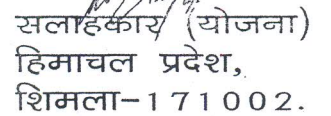 सलाहकार (योजना)
हिमाचल प्रदेश,
शिमला-171002.